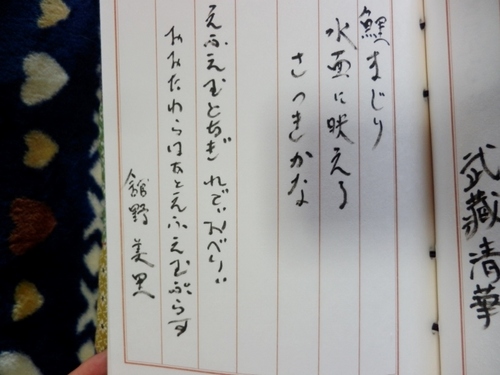 武藏清華
鯉まじり
水面に映える
さつきかな
えふえむとちぎ れでぃおべりー
みたわらはあとえふえむぷらす
舘野 美里